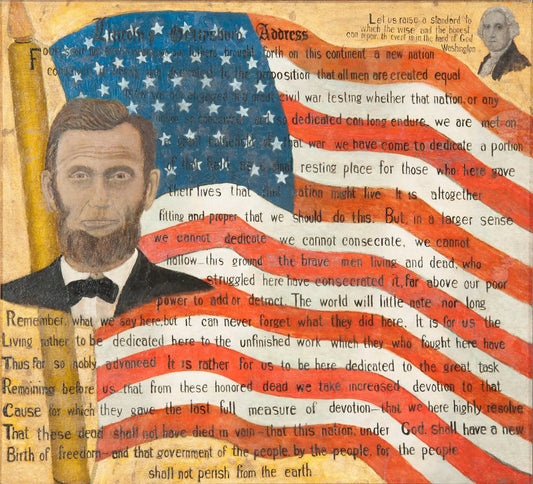 Lincoln's Address
Let us raise a standard to
which the wise and the honest
can repair, the event is in the hand of God
Washington
brought forth on this continent, a new nation
to the proposition that all men are created equal
civil war, testing whether that nation, or any
and so dedicated can long endure. we are met on
that war we have come to dedicate a portion
of that resting place for those who here gave
their lives that that nation might live. It is altogether
fitting and proper that we should do this. But, in a larger sense
we cannot dedicate we cannot consecrate, we cannot
hallow this ground the brave men living and dead, who
struggled here have consecrated it, far above our poor
power to add or detract. The world will little note nor long
Remember, what we say here, but it can never forget what they did here. It is for us the
Living rather to be dedicated here to the unfinished work which they who fought here have
Thus far so nobly advanced It is rather for us to be here dedicated to the great task
Remaining before us that from these honored dead we take increased devotion to that
Cause for which they gave the last full measure of devotion—that we here highly resolve
That these dead shall not have died in vain that this nation, under God, shall have a new
Birth of freedom—and that government of the people, by the people, for the people
shall not perish from the earth